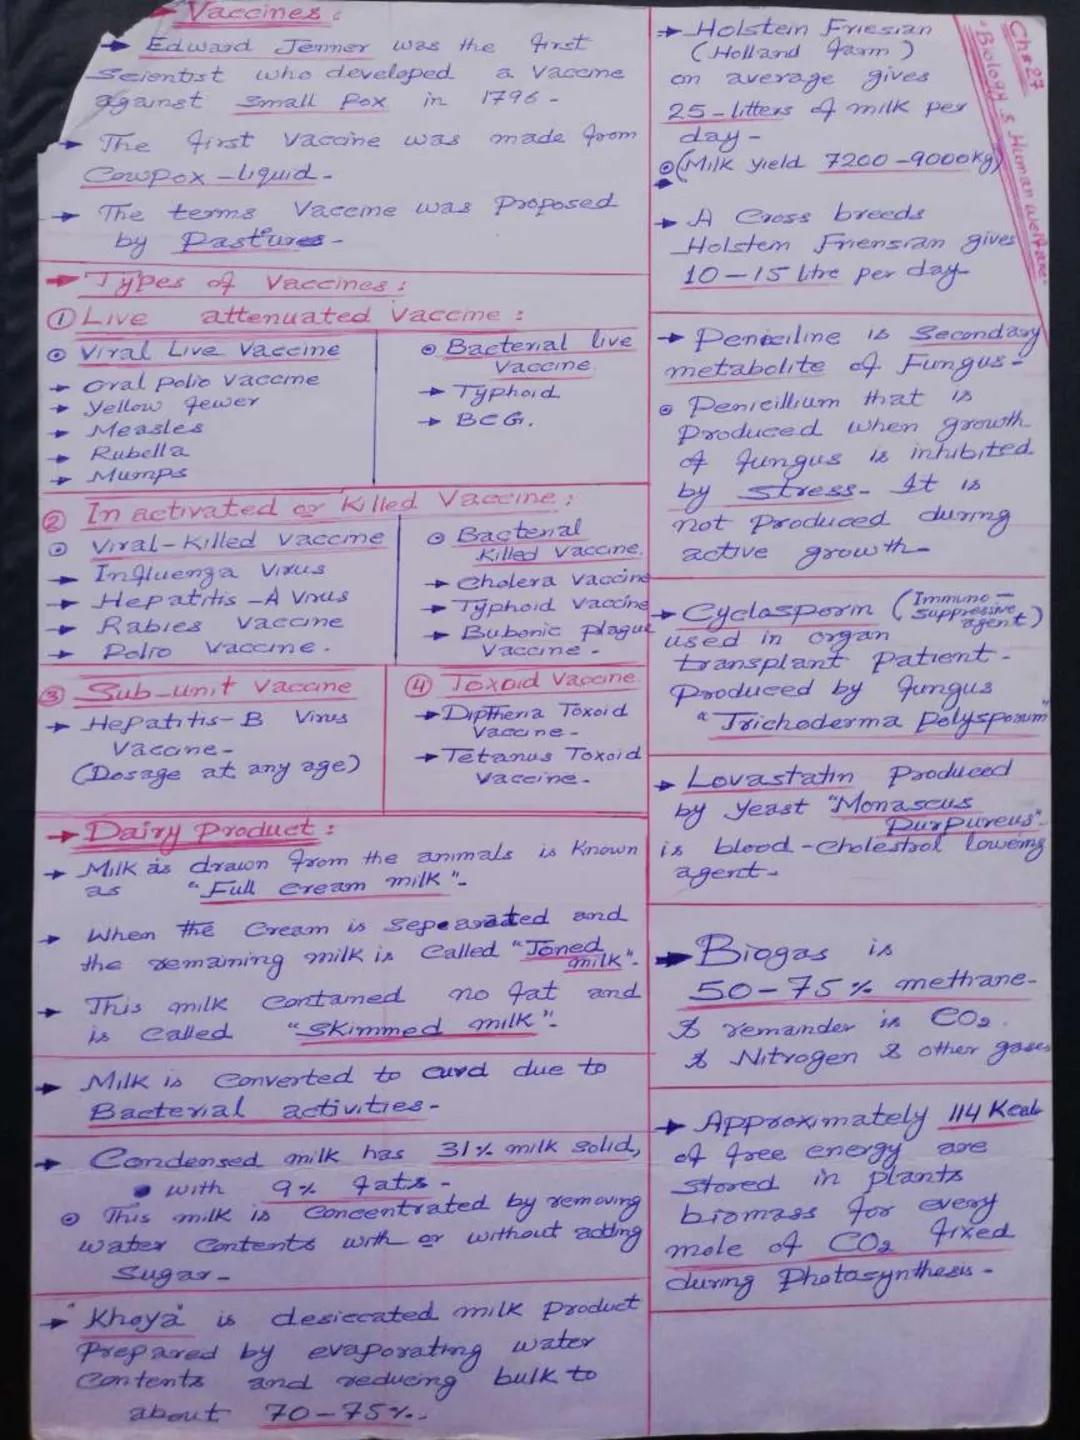 → Vaccines :
→ Edward Jenner was the first
Scientist who developed a Vaccine
against Small Pox in 1796 -
→ The first Vaccine was made from
Cowpox - liquid -
→ The terms Vaccine was Proposed
by Pastures -
→ Types of Vaccines :
① Live attenuated Vaccine :
⊙ Viral Live Vaccine
→ Oral Polio Vaccine
→ Yellow fewer
→ Measles
→ Rubella
→ Mumps
⊙ Bacterial live
Vaccine
→ Typhoid
→ BCG.
② In activated or Killed Vaccine ;
⊙ Viral - Killed Vaccine
→ Influenga Virus
→ Hepatitis - A Virus
→ Rabies Vaccine
→ Polio Vaccine .
⊙ Bacterial
Killed Vaccine.
→ Cholera Vaccine
→ Typhoid Vaccine
→ Bubonic plague
Vaccine -
③ Sub-unit Vaccine
→ Hepatitis - B Virus
Vaccine -
(Dosage at any age)
④ Toxoid Vaccine
→ Diptheria Toxoid
Vaccine -
→ Tetanus Toxoid
Vaccine -
→ Dairy Product :
→ Milk as drawn from the animals is Known
as "Full cream milk" -
→ When the Cream is Sepearated and
the remaining milk is Called "Toned
milk" -
→ This milk Contained no fat and
is Called "Skimmed milk" -
→ Milk is Converted to curd due to
Bacterial activities -
→ Condensed milk has 31% milk solid,
• with 9% fats -
⊙ This milk is Concentrated by removing
water Contents with or without adding
Sugar -
→ "Khoya" is desiccated milk Product
Prepared by evaporating water
Contents and reducing bulk to
about 70-75% .
Ch # 27
"Biology & Human welfare"
→ Holstein Friesian
(Holland farm)
on average gives
25 - litters of milk per
day -
⊙ (Milk yield 7200 - 9000kg)
→ A Cross breeds
Holstein Friensian gives
10-15 litre per day
→ Peniciline is Secondary
metabolite of Fungus -
⊙ Penicillium that is
Produced when growth
of fungus is inhibited
by stress - It is
not Produced during
active growth -
→ Cyclosporin (Immuno -
suppressive
agent)
used in organ
transplant Patient -
Produced by fungus
"Trichoderma Polysporum"
→ Lovastatin Produced
by yeast "Monascus
Purpureus"
is blood - Cholestrol loweing
agent -
→ Biogas is
50-75% methane -
& remainder is CO₂
& Nitrogen & other gases
→ Approximately 114 Kcal
of free energy are
Stored in plants
biomass for every
mole of CO₂ fixed
during Photosynthesis -